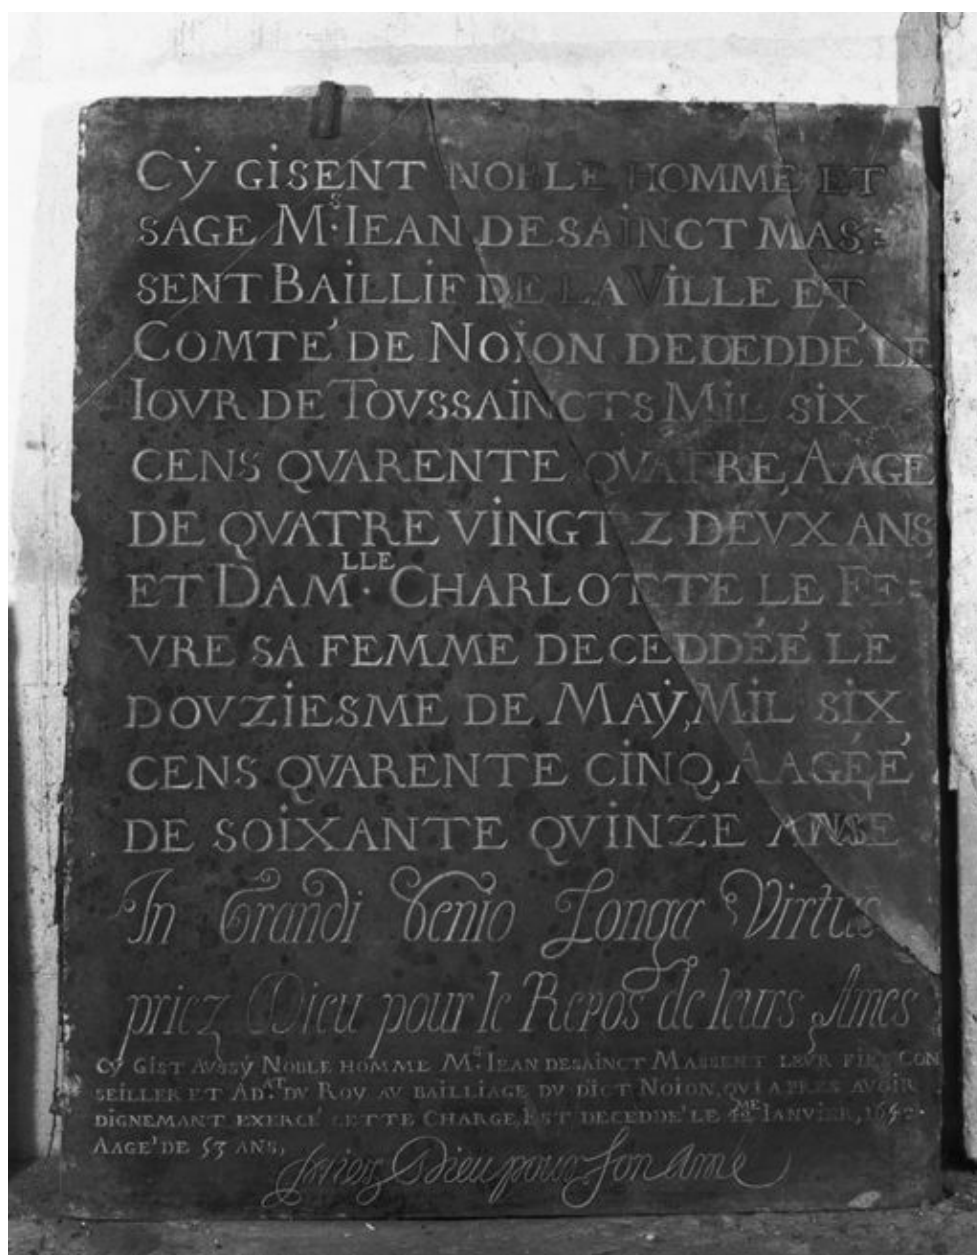 CẎ GiSENT NOBLE HOMME ET
SAGE Mˢ· IEAN DESAiNCT MAS=
SENT BAiLLiF DE LA ViLLE ET
COMTÉ DE NOiON DECEDDÉ LE
IOVR DE TOVSSAiNCTS MiL SiX
CENS QVARENTE QVATRE, AAGE
DE QVATRE ViNGTZ DEVX ANS
ET DAM·ᴸᴸᴱ CHARLOTTE LE FE=
VRE SA FEMME DECEDDÉÉ LE
DOVZiESME DE MAẎ, MiL SiX
CENS QVARENTE CiNQ, AAGÉÉ
DE SOiXANTE QViNZE ANS
In Grandi Genio Longa Virtus
priez Dieu pour le Repos de leurs Ames
CẎ GiST AVSSẎ NOBLE HOMME Mˢ· IEAN DESAiNCT MASSENT LEVR FiLS CON
SEiLLER ET AD·ᴬᵀ DV ROY AV BAiLLiAGE DV DiCT NOiON, QVi APRES AVOiR
DiGNEMANT EXERCÉ CETTE CHARGE, EST DECEDDÉ LE 12ᴹᴱ IANViER, 1652·
AAGÉ DE 53 ANS,
Priez Dieu pour son Ame